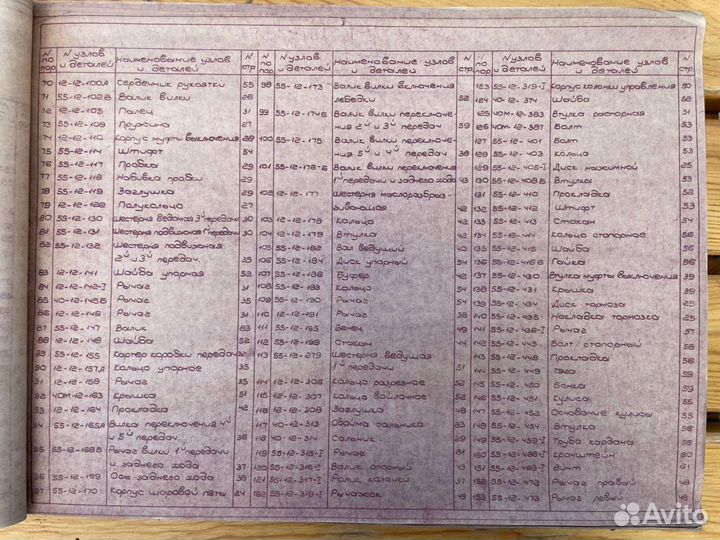 3
N по пор. N узлов и деталей Наименование узлов и деталей N стр
70 12-12-100А Сердечник рукоятки 55
71 55-12-102В Валик вилки 26
72 12-12-105 Палец 31
73 55-12-109 Пружина 27
74 12-12-110 Корпус муфты выключения 29
75 55-12-114 Штифт 54
76 55-12-117 Пробка 29
77 55-12-118 Набивка пробки 29
78 55-12-119 Заглушка 29
79 12-12-122 Полукольцо 27
80 55-12-130 Шестерня ведомая 3й передачи 30
81 55-12-131 Шестерня подвижная 1й передачи 30
82 55-12-132 Шестерня подвижная
2й и 3й передач. 35
83 12-12-141 Шайба упорная 52
84 12-12-142-I Рычаг 31
85 40-12-145Б Рычаг 35
86 12-12-146 Рычаг 31
87 55-12-147 Валик 83
88 12-12-148 Шайба 52
89 55-12-155 Картер коробки передач
90 12-12-157А Кольцо упорное 35
91 12-12-159 Рычаг 35
92 40М-12-163 Крышка 51
93 12-12-164 Прокладка 42
94 55-12-165А Вилка переключения 4й
и 5й передач. 36
95 55-12-168Б Рычаг вилки 1й передачи
и заднего хода 37
96 55-12-169 Ось заднего хода 38
97 55-12-170 Корпус шаровой пяты 24
N по пор. N узлов и деталей Наименование узлов и деталей N стр.
98 55-12-173 Валик вилки включения
лебедки 52
99 55-12-174Б Валик вилки переключе-
ния 2й и 3й передач 59
100 55-12-175 Валик вилки переключе-
ния 5й и 4й передач 38
101 55-12-178-Б Валик вилки переключения
1й передачи и заднего хода 43
102 12-12-177 Шестерня маслоразбрыз-
гивающая 42
103 12-12-178 Кольцо 42
104 12-12-179 Втулка 42
105 55-12-182 Вал ведущий 40
106 55-12-184 Диск упорный 54
107 55-12-186 Буфер 42
108 55-12-189 Кольцо 54
109 55-12-190 Рычаг 54
110 12-12-191 Рычаг 38
111 55-12-195 Венец 49
112 55-12-198 Стакан 44
113 55-12-279 Шестерня ведущая
1й передачи 51
114 12-12-306 Кольцо разрезное 52
115 12-12-307 Кольцо войлочное 52
116 12-12-308 Заглушка 48
117 40-12-313 Обойма сальника 48
118 40-12-314 Сальник 29
119 55-12-315-I Рычаг 61
120 55-12-316-I Валик опорный 43
121 55-12-317-I Ролик колонки
122 55-12-318-I Рычажок 49
N по пор. N узлов и деталей Наименование узлов и деталей N стр.
123 55-12-319-I Корпус колонки управления 50
124 40-12-374 Шайба 52
125 40М-12-383 Втулка распорная 51
126 40М-12-387 Болт 53
127 55-12-401 Болт 53
128 55-12-403 Кольцо 53
129 55-12-405-I Диск нажимной 25
130 55-12-408Б Втулка 53
131 55-12-410 Прокладка 52
132 55-12-412 Штифт 53
133 55-12-413 Стакан 54
134 55-12-414 Кольцо стопорное 56
135 55-12-415 Шайба 56
136 55-12-416Б Гайка 86
137 55-12-430 Втулка муфты выключения 39
138 55-12-431 Крышка 39
139 55-12-434 Диск тормоза 25
140 55-12-435 Накладка тормоза 25
141 55-12-436-I Рычаг 57
142 55-12-445 Болт стопорный 58
143 55-12-448 Прокладка 56
144 55-12-449 Тяга 56
145 55-12-450 Бонка 59
146 55-12-451 Кулиса 55
147 55-12-452 Основание кулисы 55
148 55-12-454 Втулка 56
149 55-12-459-I Труба кардана 56
150 55-12-466-I Кронштейн 60
151 55-12-468-I Винт 61
152 55-12-472 Рычаг правый 48
153 55-12-473 Рычаг левый 48
Avito